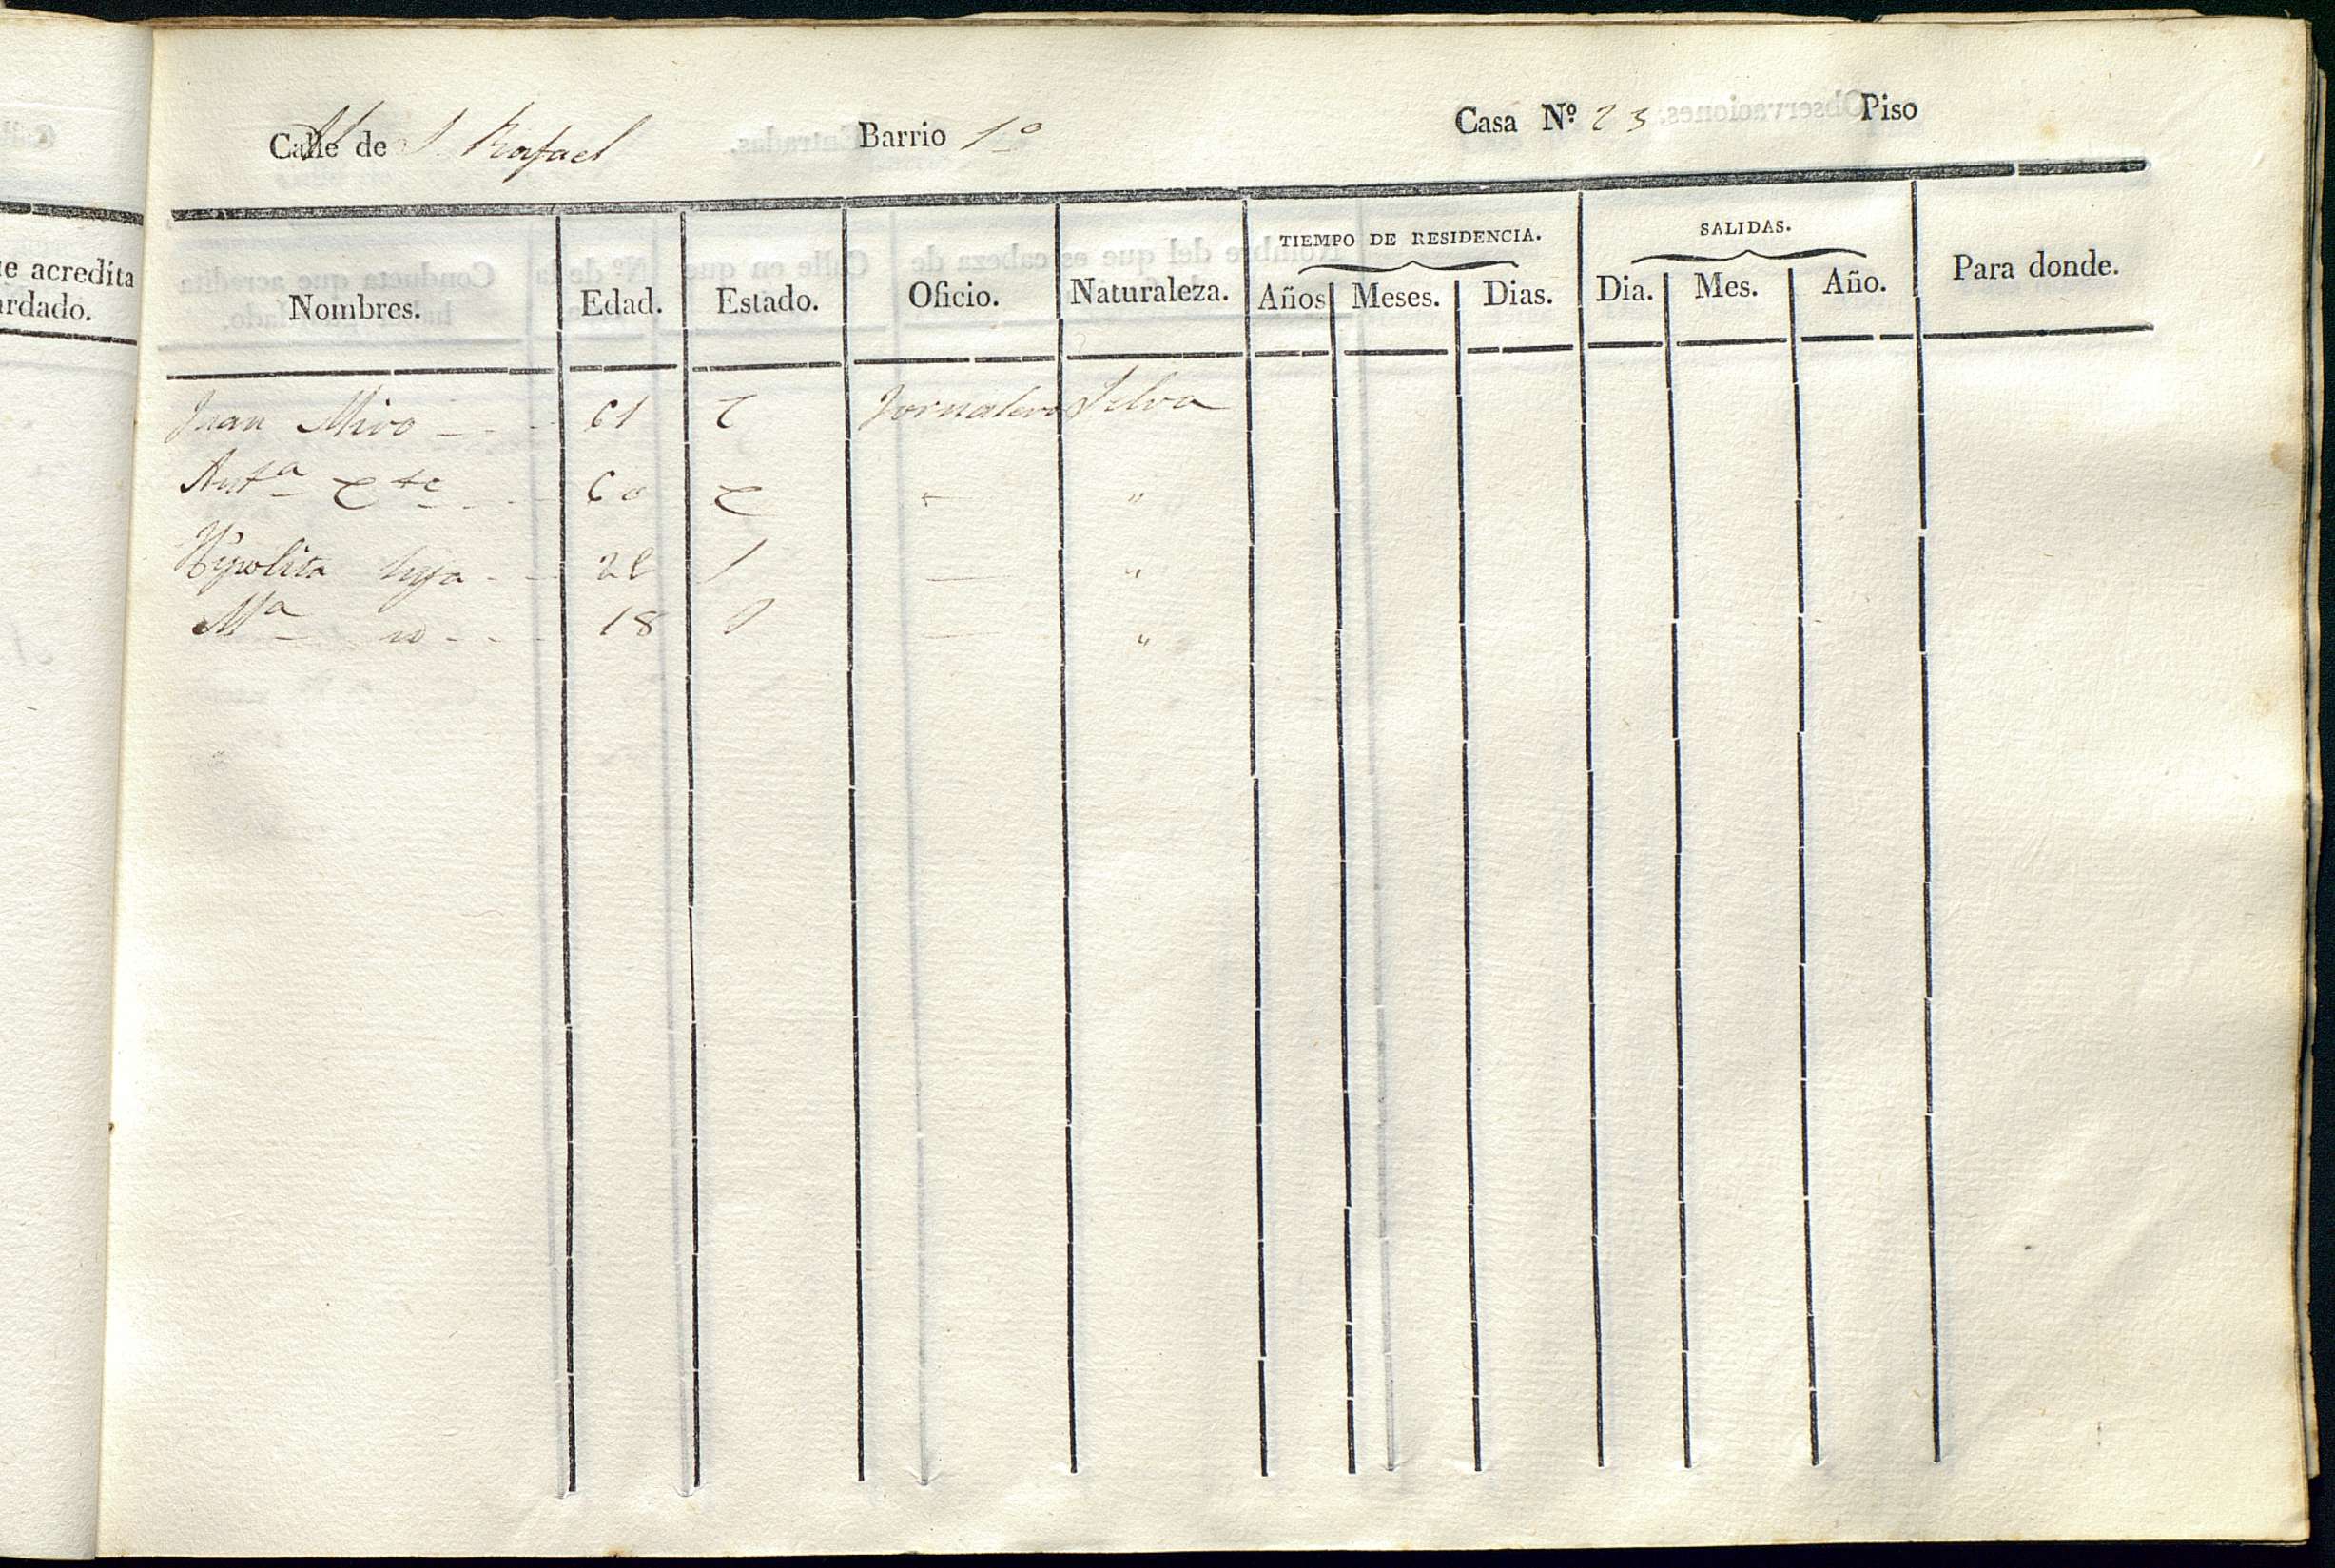 Calle de S. Rafael Barrio 1º Casa Nº 23 Piso
TIEMPO DE RESIDENCIA. SALIDAS.
Nombres. Edad. Estado. Oficio. Naturaleza. Años Meses. Dias. Dia. Mes. Año. Para donde.
Juan Miro 61 C Jornalero Selva
Antª Cte 60 C - "
Hipolita hija S - "
Mª 18 S - "
e acredita
ardado.